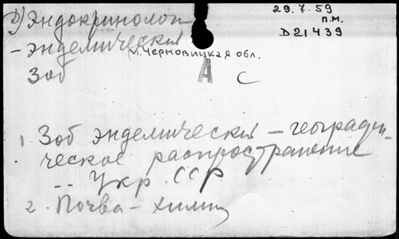 29.7.59
п.м.
D21439
э) Эндокринолог
- эндемический
м. Черновицкая обл.
Зоб
A
C
1. Зоб эндемический - географи-
ческое распространение
.. Укр. ССР
2. Почва - химия